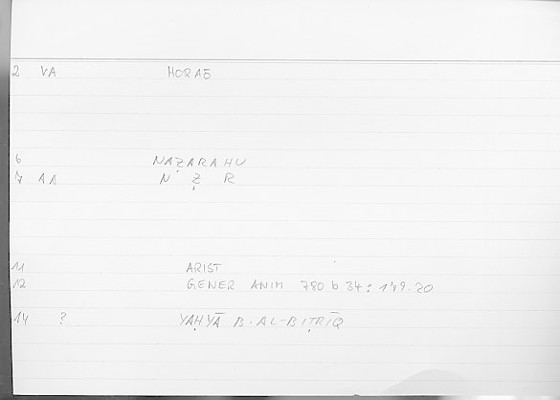 2 VA HORAŌ
6 NAẒARAHU
7 AA N Ẓ R
11 ARIST
12 GENER ANIM 780 b 34 : 189.20
14 ? YAḤYĀ B. AL-BIṬRĪQ